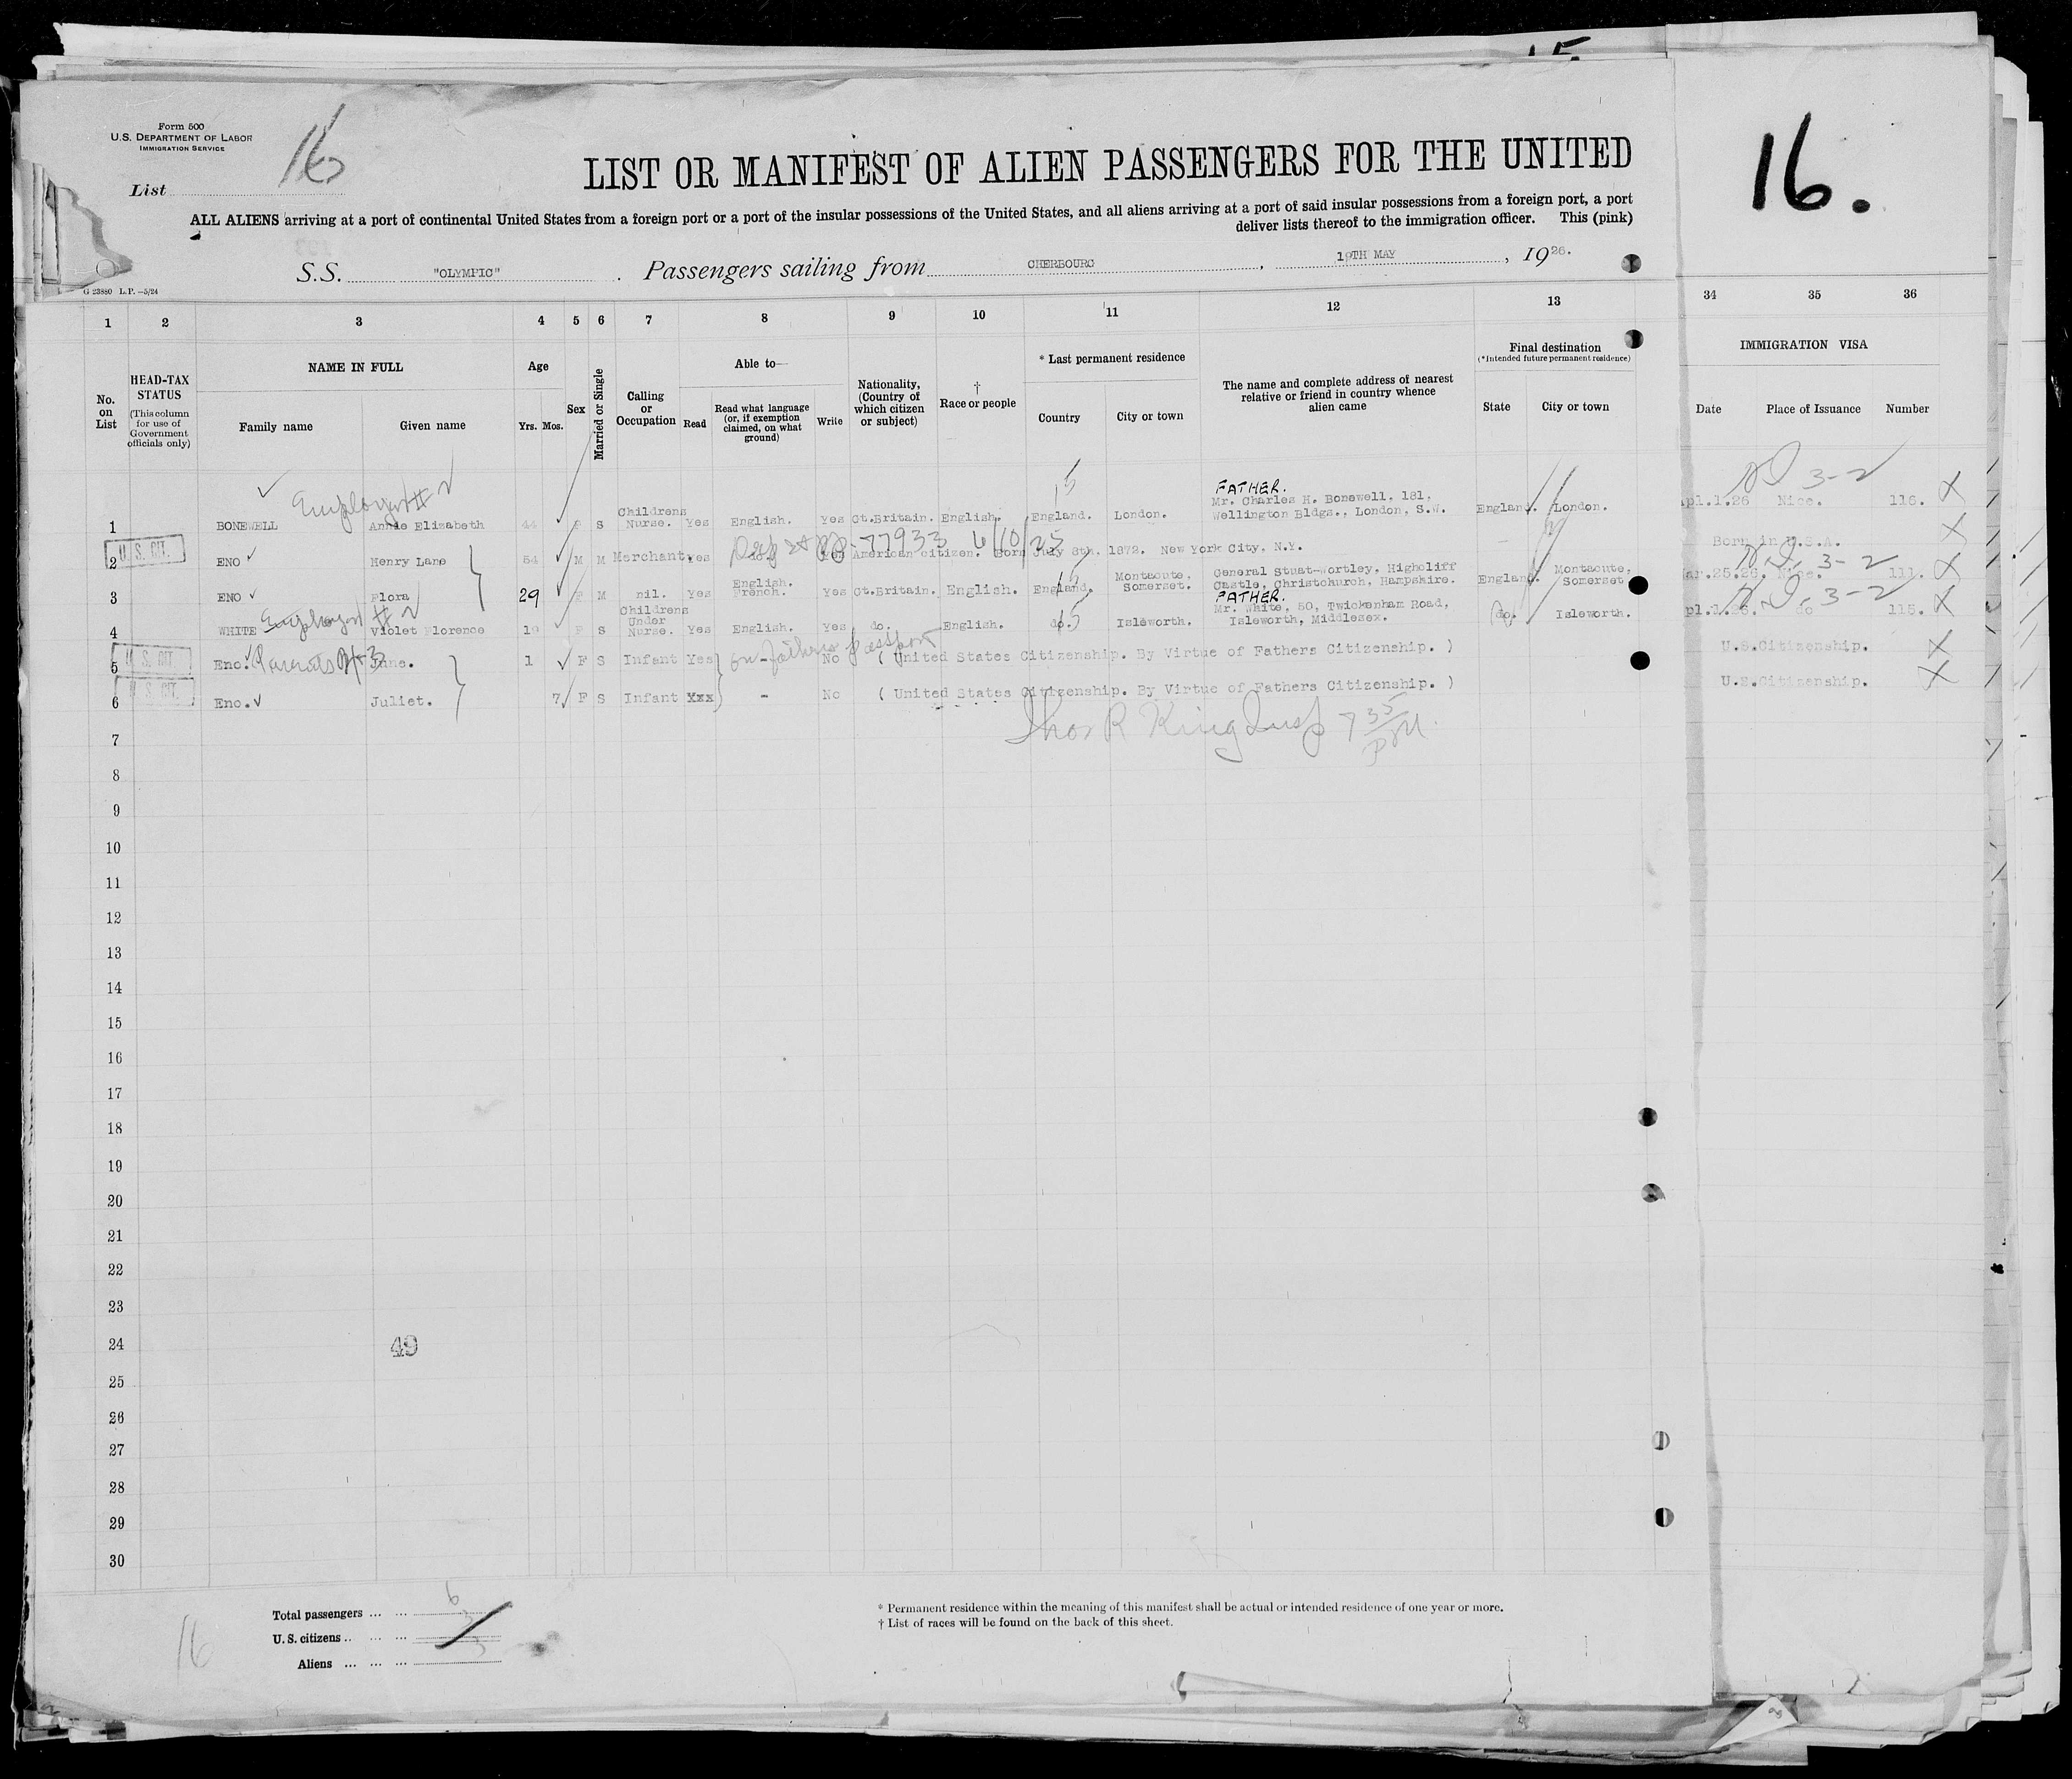 15
Form 500
U.S. DEPARTMENT OF LABOR
IMMIGRATION SERVICE
List 16
LIST OR MANIFEST OF ALIEN PASSENGERS FOR THE UNITED
16.
ALL ALIENS arriving at a port of continental United States from a foreign port or a port of the insular possessions of the United States, and all aliens arriving at a port of said insular possessions from a foreign port, a port
deliver lists thereof to the immigration officer. This (pink)
S.S. "OLYMPIC" . Passengers sailing from CHERBOURG , 19TH MAY , 1926.
G 23880 L.P.—5/24
1 2 3 4 5 6 7 8 9 10 11 12 13 34 35 36
No. on List
HEAD-TAX STATUS (This column for use of Government officials only)
NAME IN FULL Family name Given name
Age Yrs. Mos.
Sex
Married or Single
Calling or Occupation
Able to— Read Read what language (or, if exemption claimed, on what ground) Write
Nationality, (Country of which citizen or subject)
† Race or people
* Last permanent residence Country City or town
The name and complete address of nearest relative or friend in country whence alien came
Final destination (*Intended future permanent residence) State City or town
IMMIGRATION VISA Date Place of Issuance Number
Employer #2
1 BONEWELL Annie Elizabeth 44 F S Childrens Nurse. Yes English. Yes Gt.Britain. English. England. London. FATHER. Mr. Charles H. Bonewell, 181, Wellington Bldgs., London, S.W. England. London. pl.1.26 Nice. 116. X
3-2
U. S. CIT.
2 ENO Henry Lane 54 M M Merchant Yes Yes American citizen. Born July 8th. 1872. New York City, N.Y. Born in U.S.A. X
77933 6/10/25
3 ENO Flora 29 F M nil. Yes English. French. Yes Gt.Britain. English. England. Montacute, Somerset. General Stuat-Wortley, Highcliff Castle, Christchurch, Hampshire. England. Montacute, Somerset ar.25.26. Nice. 111. X
3-2
Employer #2
4 WHITE Violet Florence 19 F S Childrens Under Nurse. Yes English. Yes do. English. do. Isleworth. FATHER. Mr. White, 50, Twickenham Road, Isleworth, Middlesex. do. Isleworth. pl.1.26. do 115. X
3-2
U. S. CIT.
5 Eno. Parents 2+3 June. 1 F S Infant Yes - No ( United States Citizenship. By Virtue of Fathers Citizenship. ) U.S.Citizenship. X
on fathers passport
U. S. CIT.
6 Eno. Juliet. 7 F S Infant Xxx - No ( United States Citizenship. By Virtue of Fathers Citizenship. ) U.S.Citizenship. X
7 Thos R King Insp 7 35 PM.
8
9
10
11
12
13
14
15
16
17
18
19
20
21
22
23
24 49
25
26
27
28
29
30
Total passengers ... ... 6
U. S. citizens .. ... ... 3
Aliens ... ... ... 3
16
* Permanent residence within the meaning of this manifest shall be actual or intended residence of one year or more.
† List of races will be found on the back of this sheet.